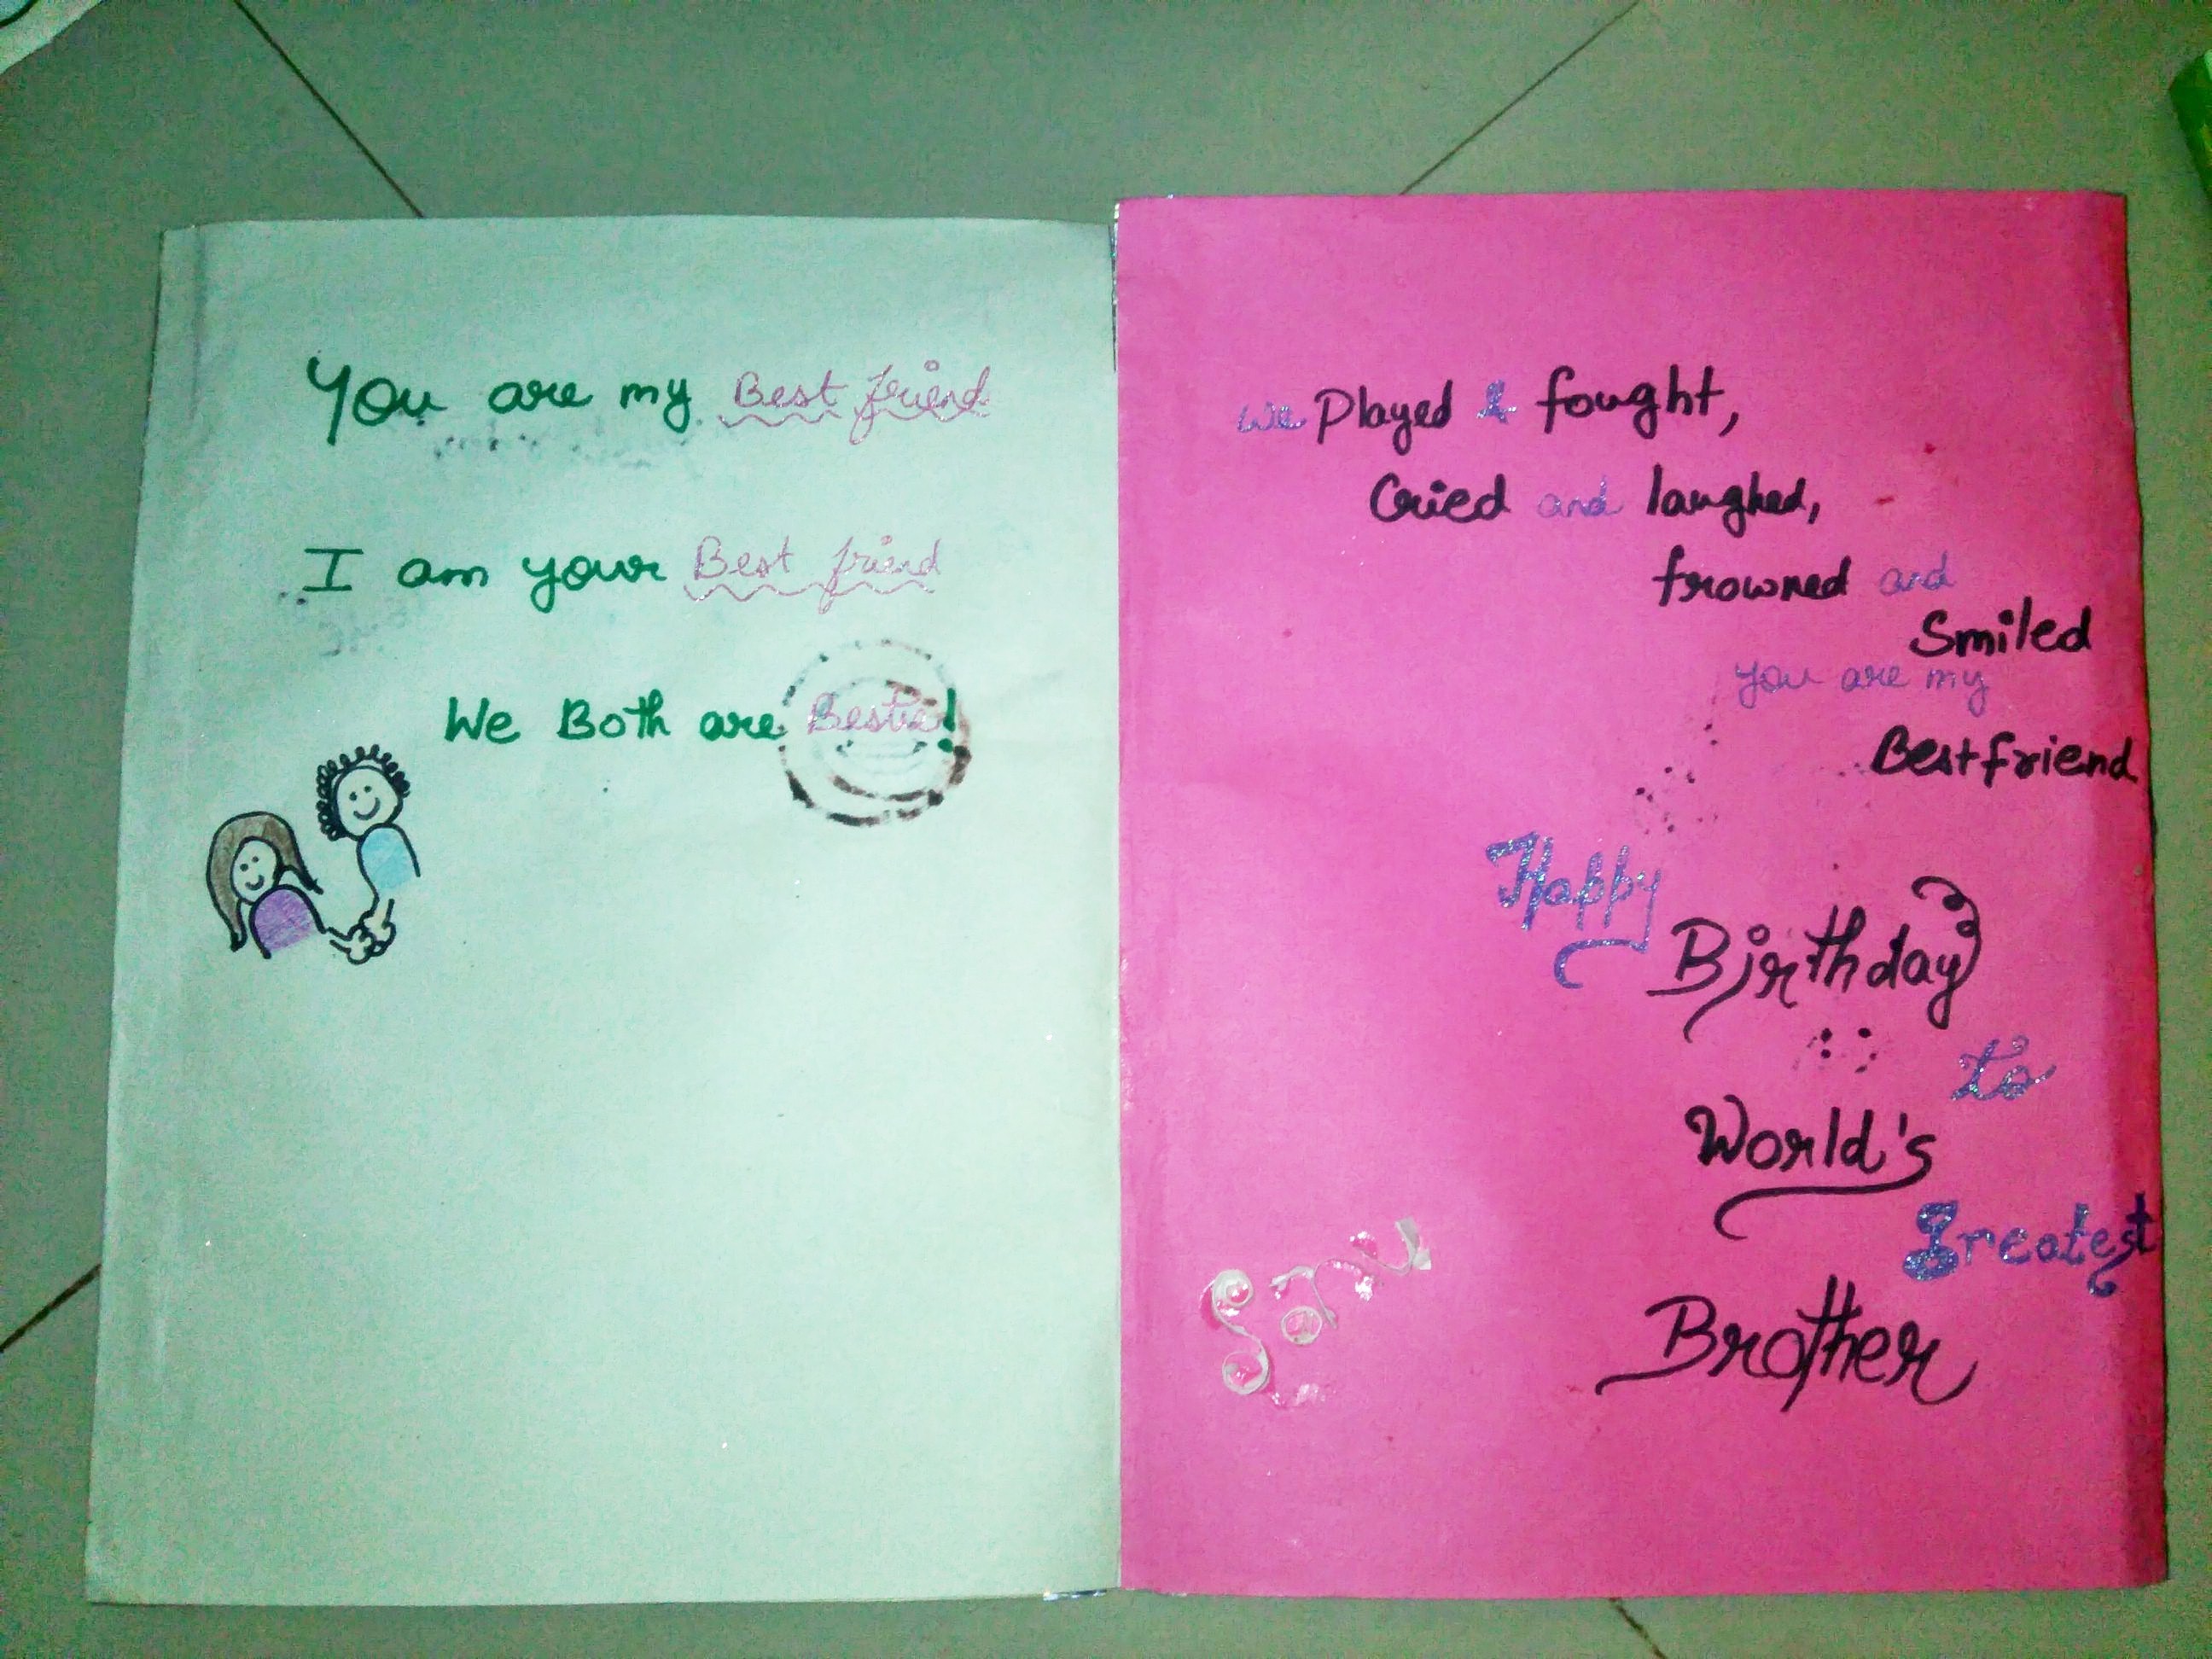 You are my Best friend
I am your Best friend
We Both are Bestie!
We Played & fought,
Cried and laughed,
frowned and
Smiled
You are my
Bestfriend
Happy
Birthday
to
World's
greatest
Brother